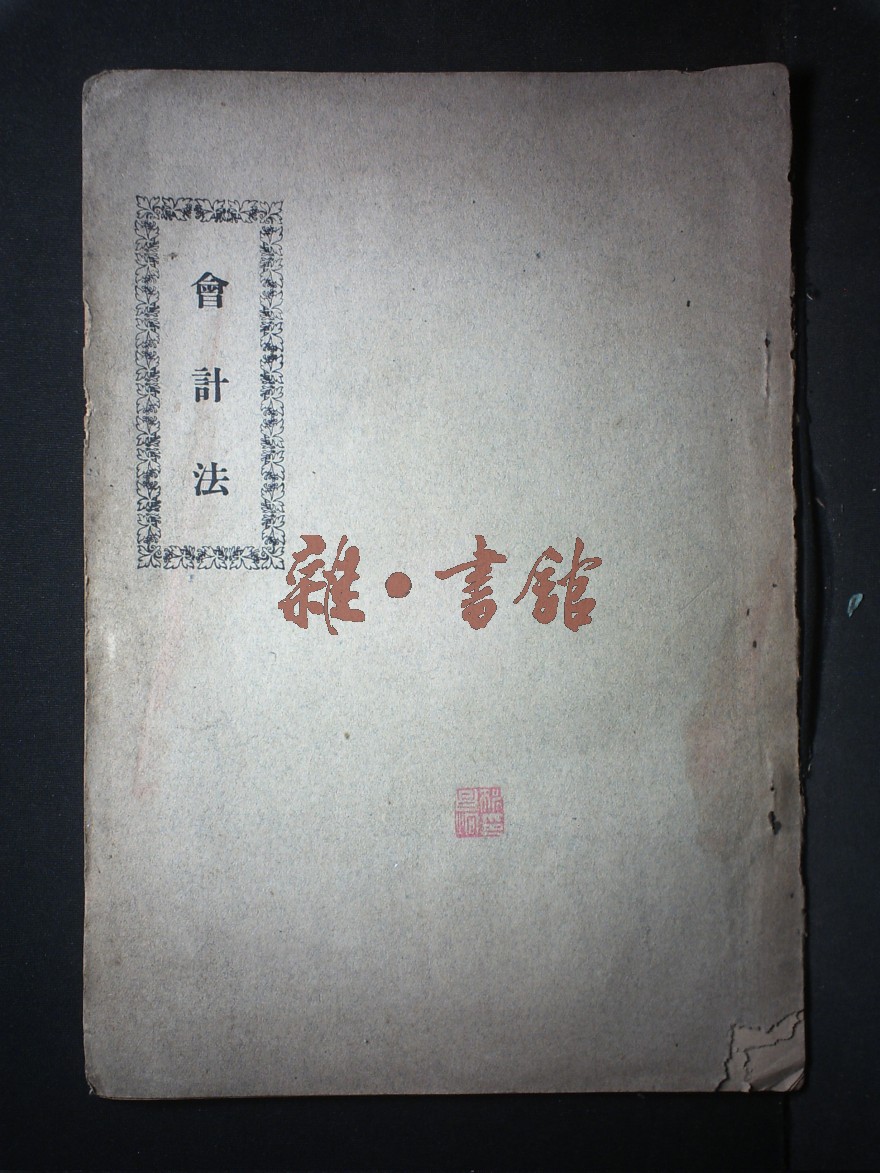 會計法
雜·書館